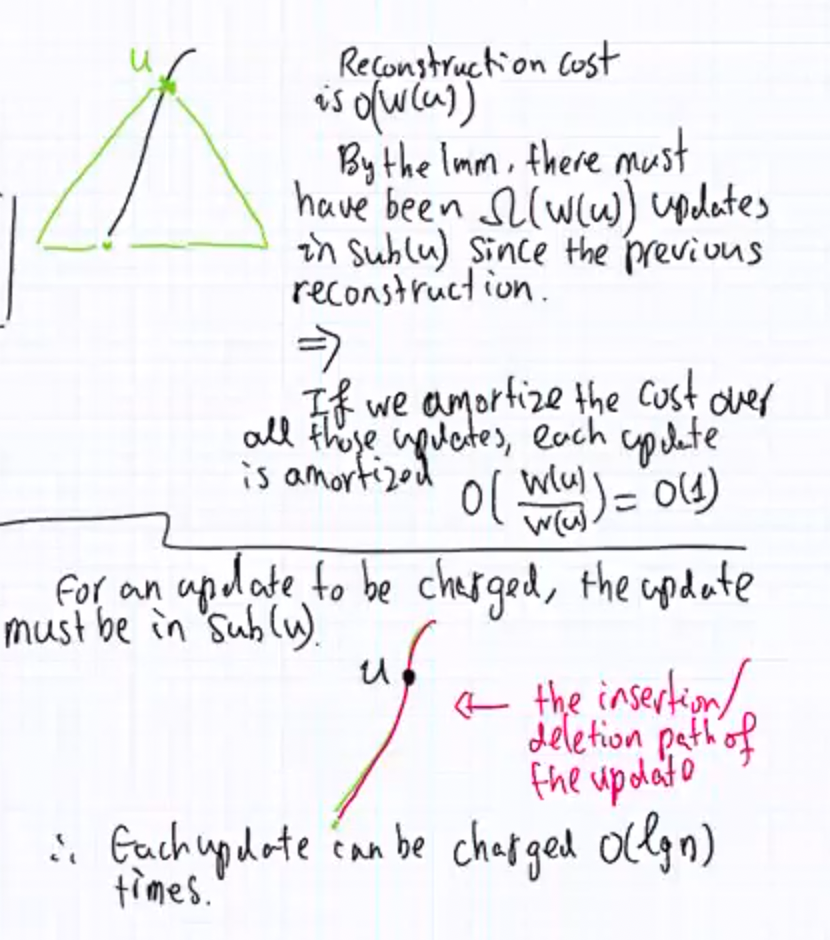 u
Reconstruction cost
is O(w(u))
By the lmm, there must
have been Ω(w(u)) updates
in sub(u) since the previous
reconstruction.
⇒
If we amortize the cost over
all those updates, each update
is amortized O(w(u)/w(u)) = O(1)
For an update to be charged, the update
must be in sub(u).
u
← the insertion/
deletion path of
the update
∴ Each update can be charged O(lg n)
times.